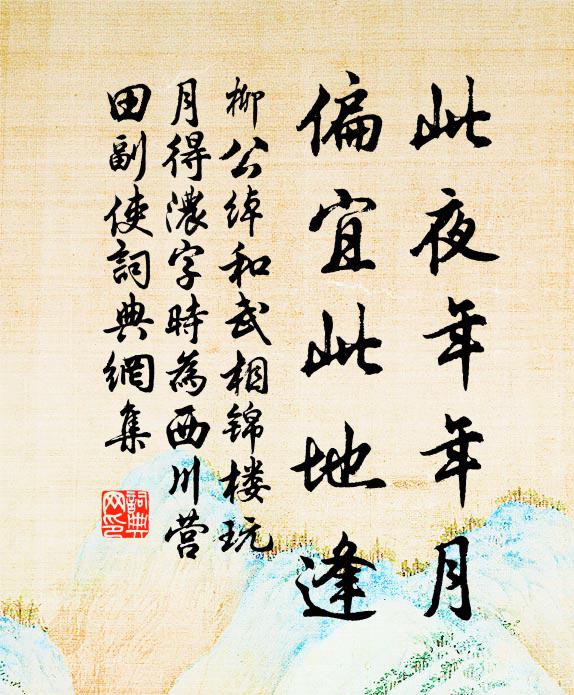 此夜年年月
偏宜此地逢
柳公绰和武相锦楼玩
月得濃字時為西川营
田副使詞典網集
詞典
网印